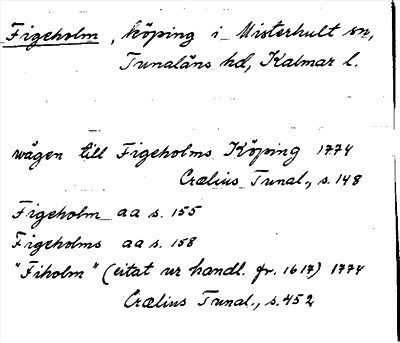 Figeholm, köping i Misterhult sn,
Tunaläns hd, Kalmar l.
wägen till Figeholms Köping 1774
Crælius Tunal., s. 148
Figeholm aa s. 155
Figeholms aa s. 158
"Fiholm" (citat ur handl. fr. 1617) 1774
Crælius Tunal., s. 452